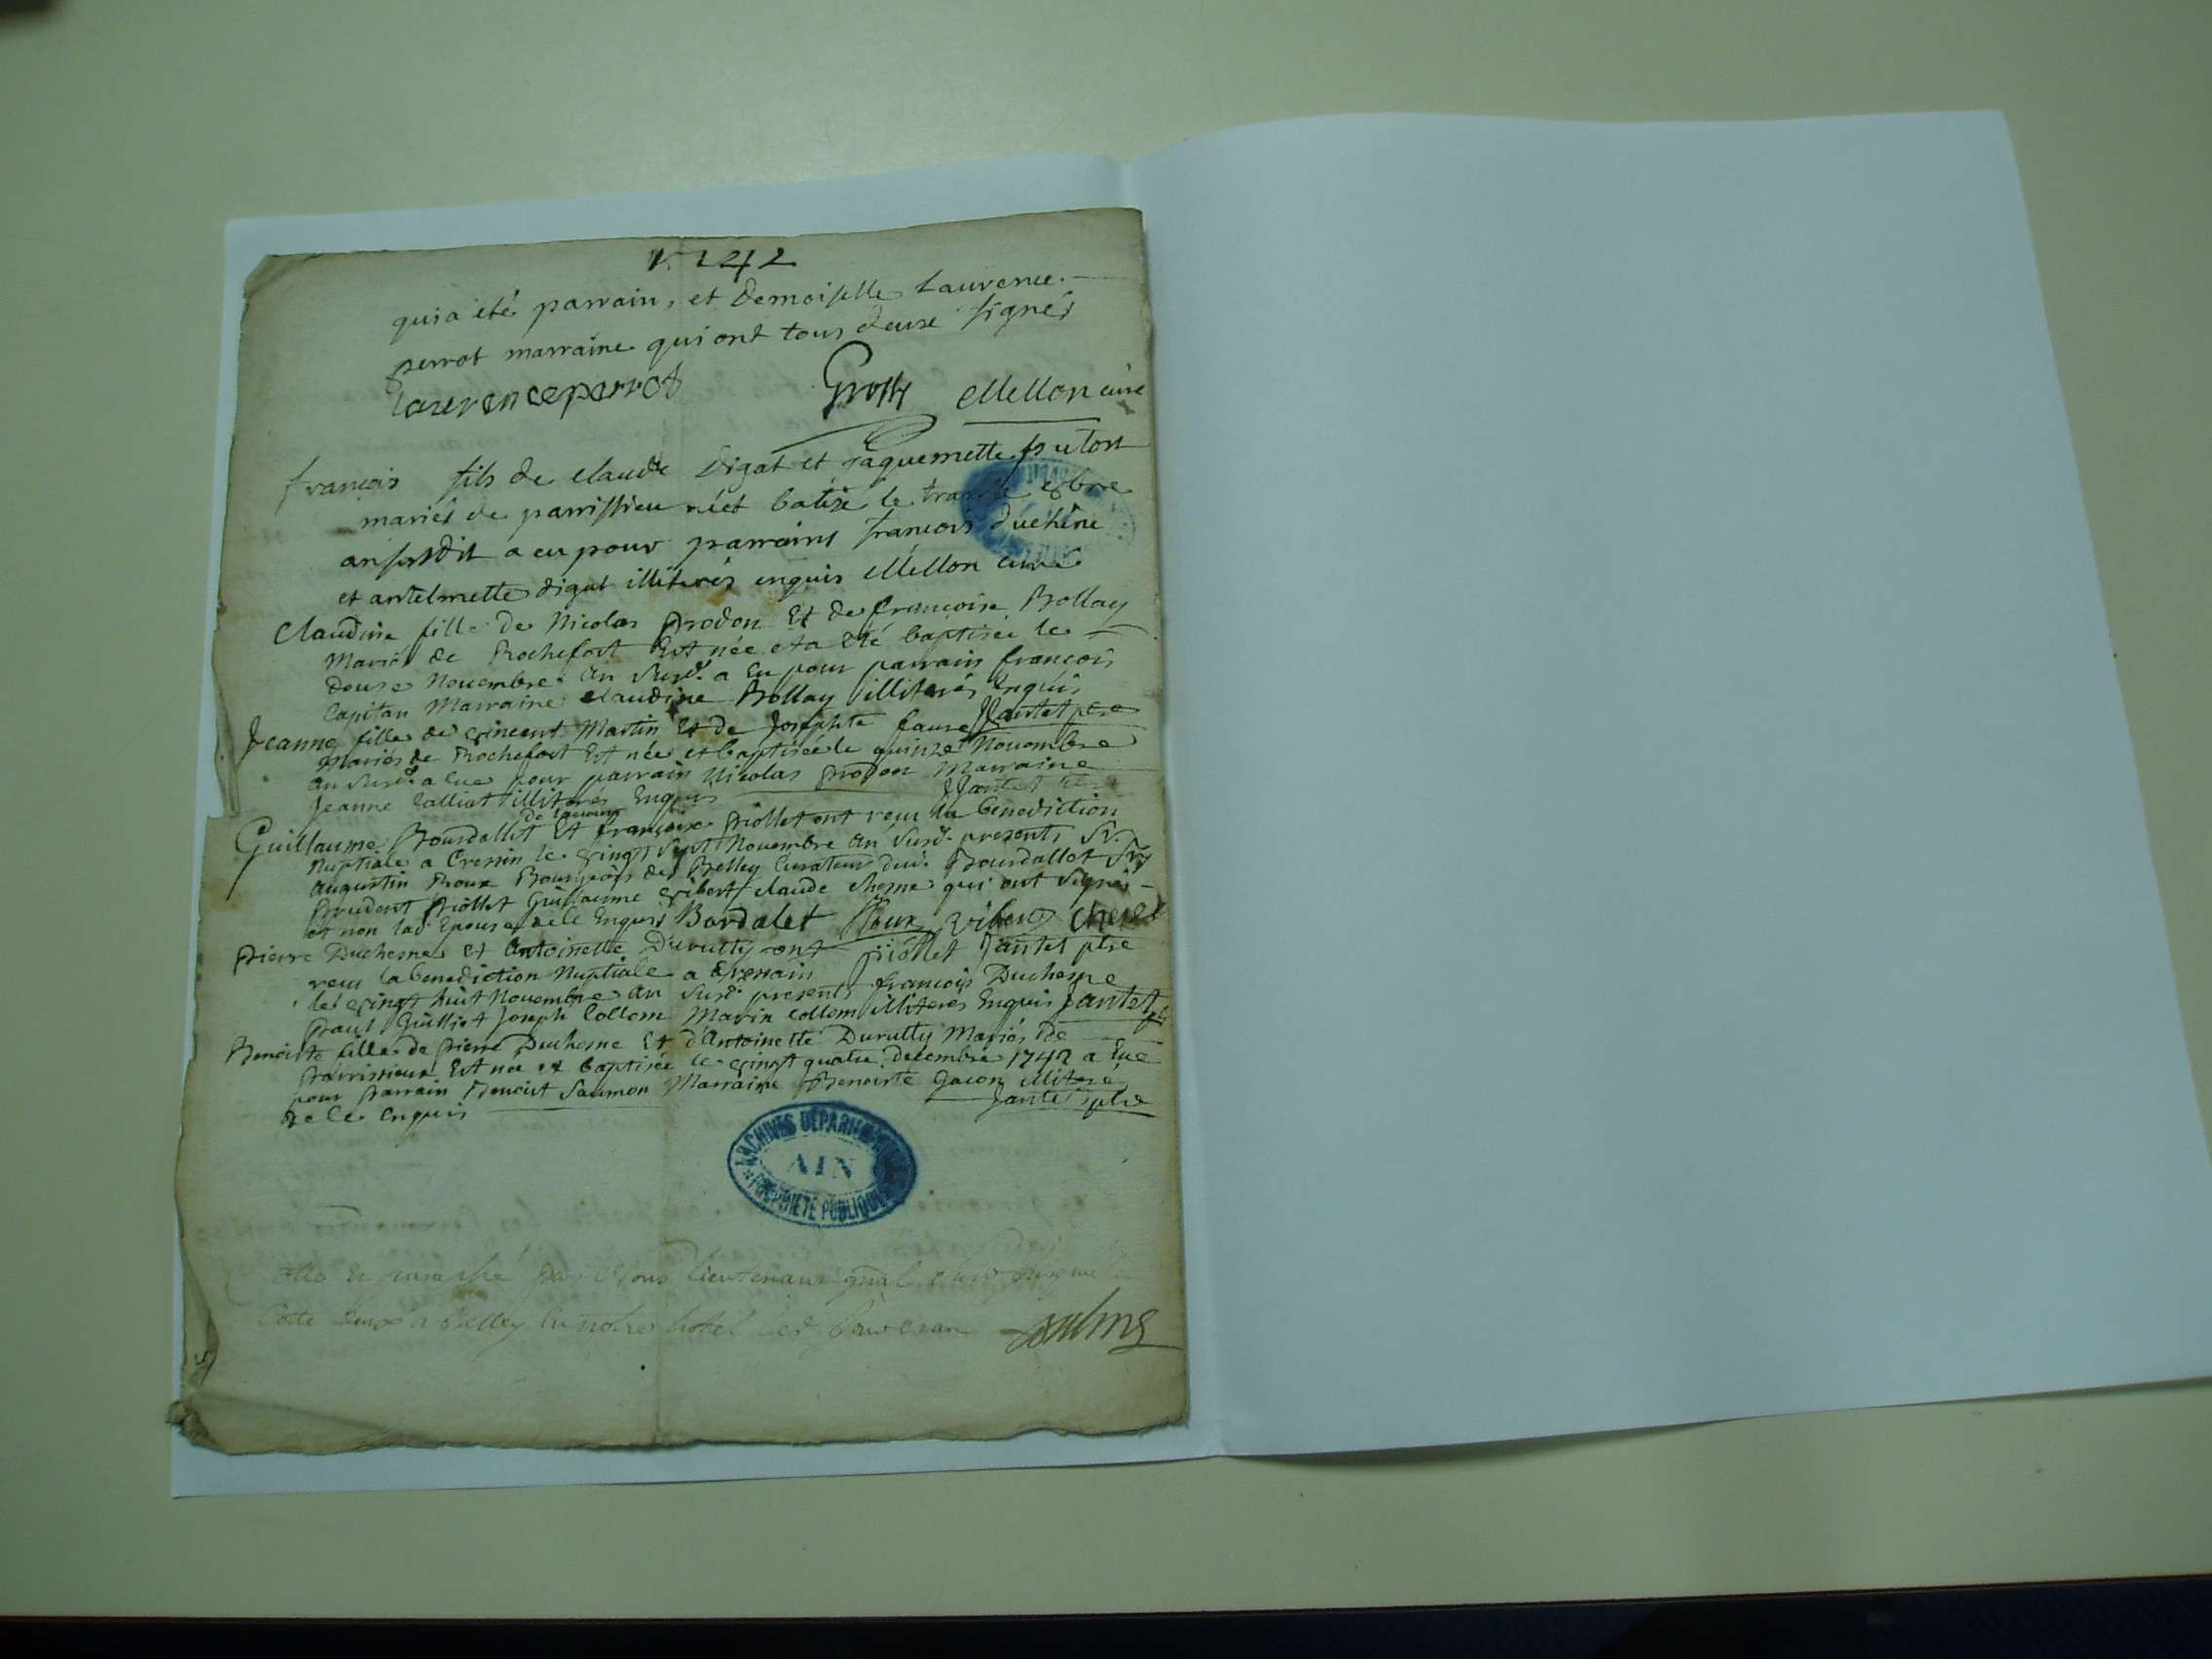 1742
qui a eté parrain, et Demoiselle Laurence
perrot marraine qui ont tous deux signés
laurence perrot Mellon curé
francois fils de claude Digat et jaquemette puton
mariés de parrissieu né et batisé le trante 8bre
an susdit a eu pour parrains francois duchêne
et antelmette digat illiterés enquis Mellon curé
Claudine fille de Nicolas Prodon Et de francoise Bollay
Mariés de Rochefort Est née et a eté baptisée le
douse Novembre an susd. a Eu pour parrain francois
Capitan Marraine claudine Bollay illiterés Enquis
Jantet ptre
Jeanne fille de vincent Martin Et de Josephte faure
Mariés de Rochefort Est née et baptisée le quinze Novembre
an susd. a Eue pour parrain Nicolas prodon Marraine
Jeanne illiterés Enquis Jantet
de lavour
Guillaume Bourdallet Et françoise Piollet ont reçu la benediction
Nuptiale a Cressin le vingt sept Novembre an susd. presents Sr.
augustin Roux Bourgeois de Belley Curateur dud. Bourdallet Sr
prudent Piollet Guillaume vibert claude chesne qui ont signés
et non lad. Epouse de ce Enquis Bordalet Roux vibert chene
piollet Jantet ptre
Pierre Duchesne et Antoinette Durutty ont
reçu la benediction Nuptiale a Cressin
le vingt huit Novembre an susd. presents francois Duchesne
Paul Guilliot Joseph Collom Marin Collom illiteres Enquis Jantet ptre
Benoiste fille de Pierre Duchesne Et d'Antoinette Durutty Mariés de
Parrissieux Est née et baptisée le vingt quatre decembre 1742 a Eue
pour parrain Benoist Saumon Marraine Benoiste Gacon illiteré
de ce enquis Jantet ptre
ARCHIVES DÉPARTEMENTALES
AIN
PROPRIÉTÉ PUBLIQUE
et paraphé par Nous Lieutenant gnal
Cotte deux a Belley En notre hotel led. jour et an